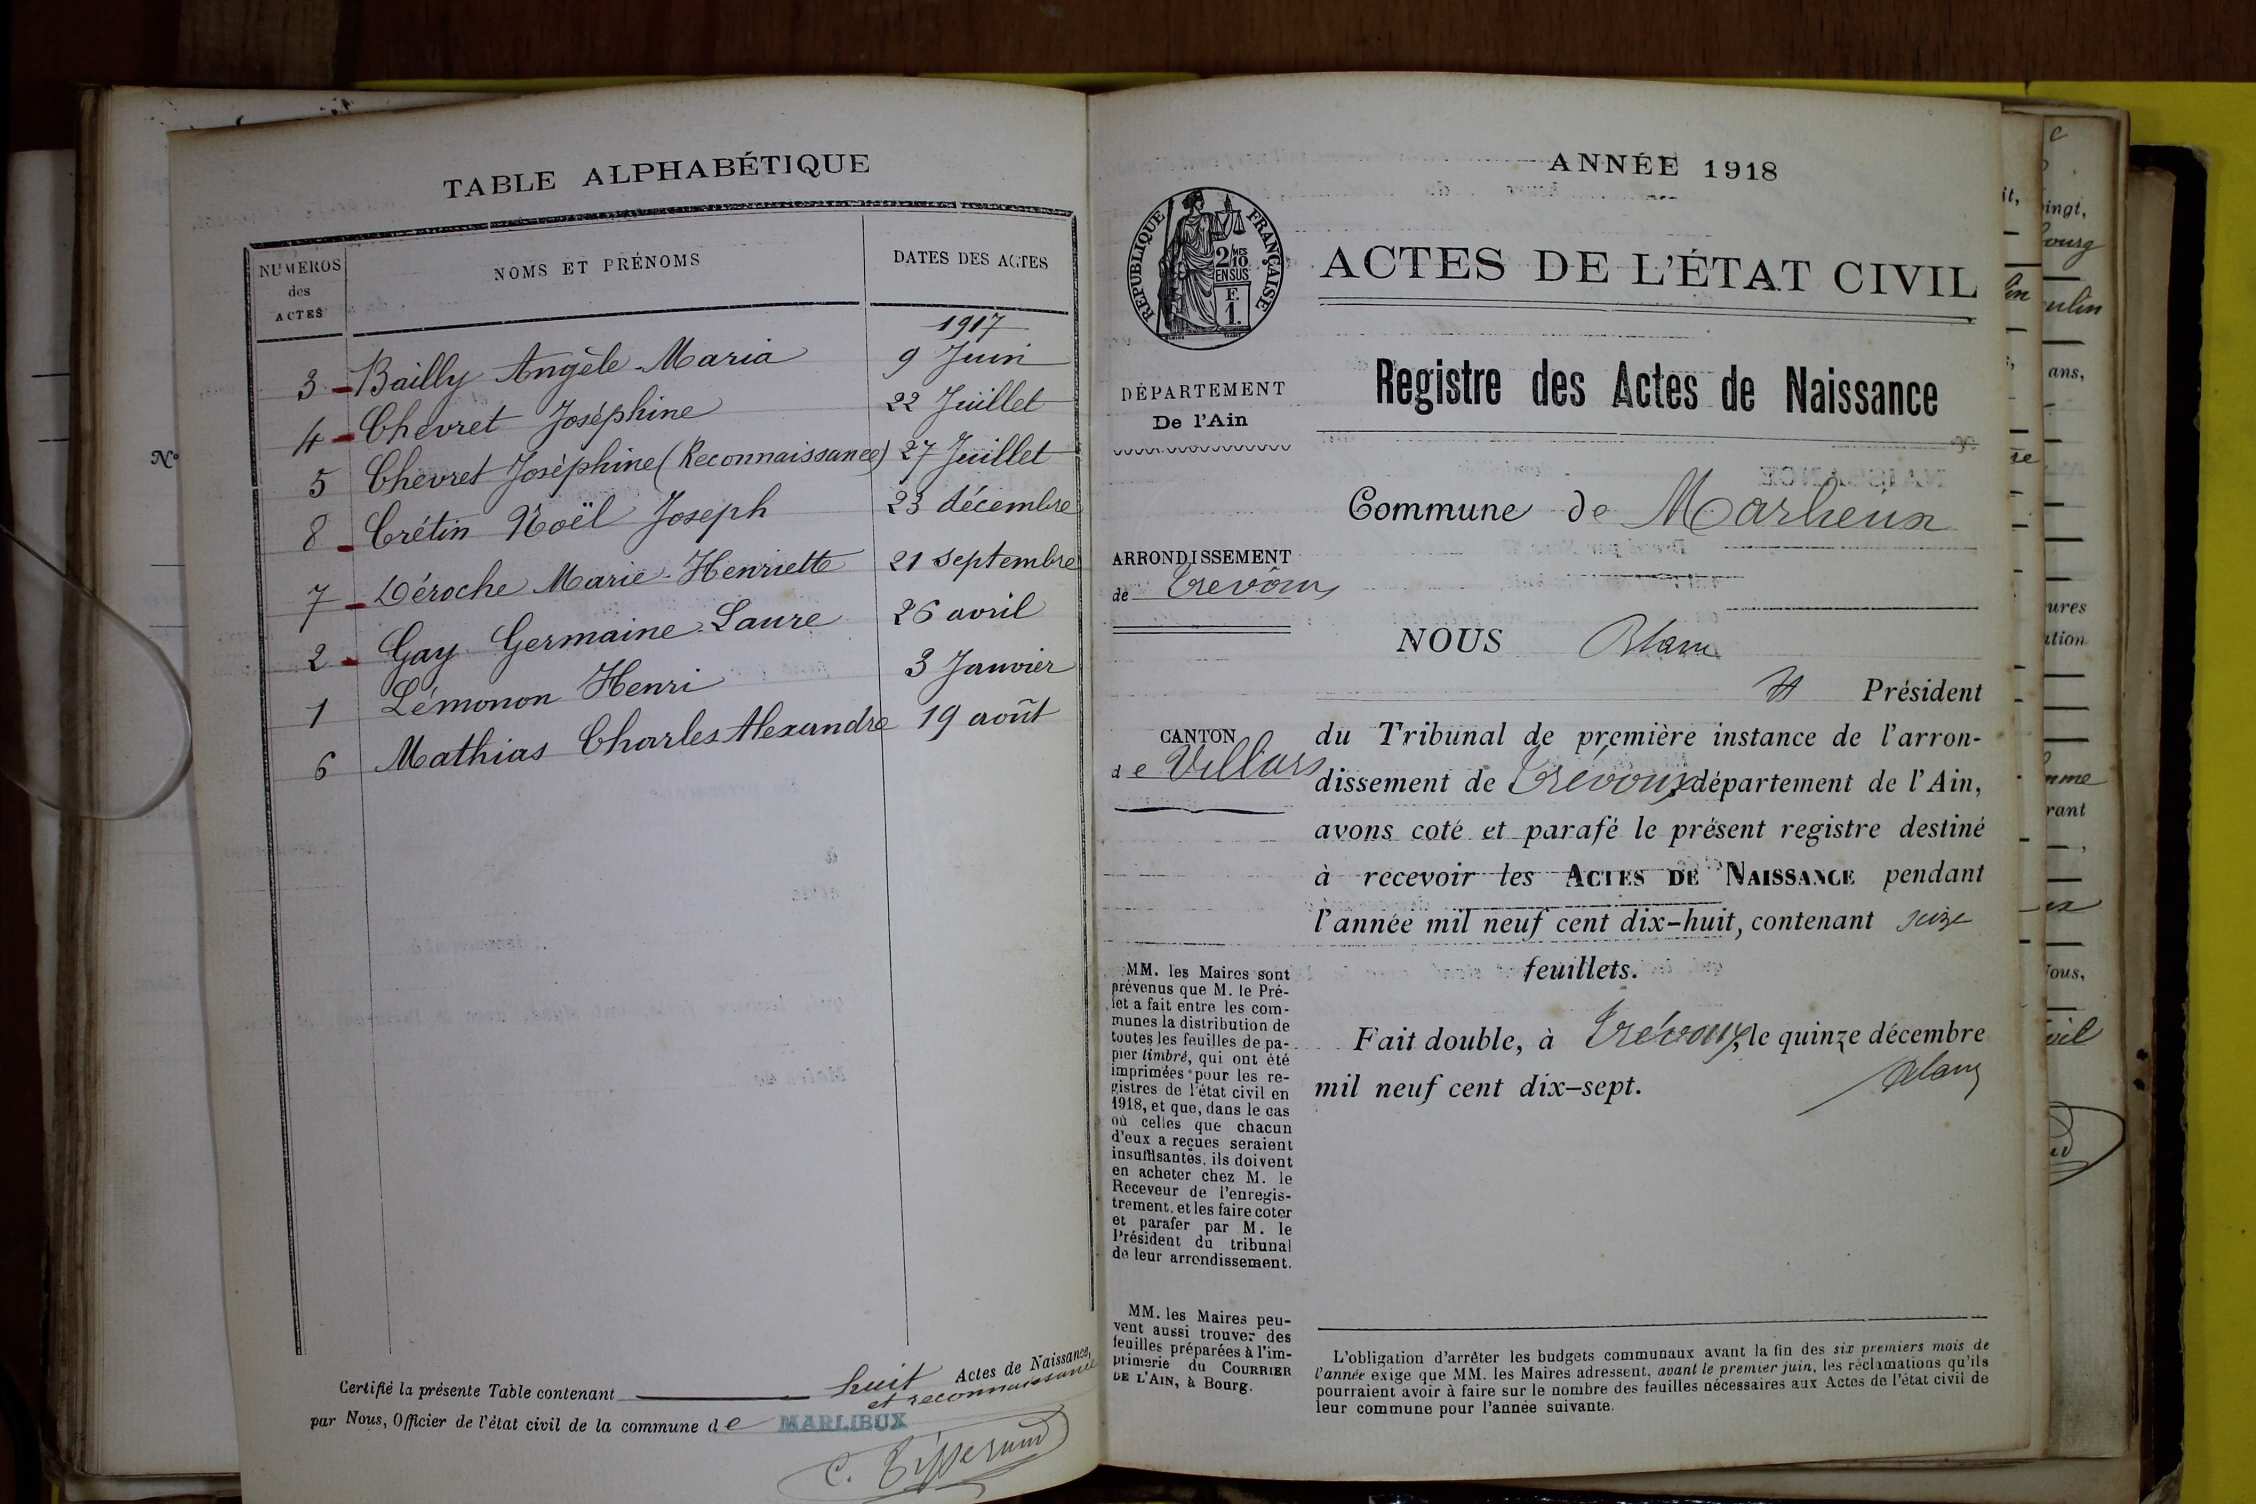 TABLE ALPHABÉTIQUE
NUMEROS
des
ACTES
NOMS ET PRÉNOMS
DATES DES ACTES
1917
3 Bailly Angèle-Maria 9 Juin
4 Chevret Joséphine 22 Juillet
5 Chevret Joséphine (Reconnaissance) 27 Juillet
8 Crétin Noël Joseph 23 décembre
7 Déroche Marie-Henriette 21 septembre
2 Gay Germaine-Laure 26 avril
1 Lémonon Henri 3 Janvier
6 Mathias Charles Alexandre 19 août
Certifié la présente Table contenant huit Actes de Naissance,
et reconnaissance
par Nous, Officier de l'état civil de la commune de MARLIEUX
C.
N°
ANNÉE 1918
RÉPUBLIQUE FRANÇAISE
2/10 MES
EN SUS
F.
1.
ACTES DE L'ÉTAT CIVIL
Registre des Actes de Naissance
DÉPARTEMENT
De l'Ain
Commune de Marlieux
ARRONDISSEMENT
de Trévoux
NOUS Blanc
Président
CANTON
de Villars
du Tribunal de première instance de l'arron-
dissement de Trévoux, département de l'Ain,
avons coté et parafé le présent registre destiné
à recevoir les ACTES DE NAISSANCE pendant
l'année mil neuf cent dix-huit, contenant seize
feuillets.
Fait double, à Trévoux, le quinze décembre
mil neuf cent dix-sept.
Blanc
MM. les Maires sont
prévenus que M. le Pré-
fet a fait entre les com-
munes la distribution de
toutes les feuilles de pa-
pier timbré, qui ont été
imprimées pour les re-
gistres de l'état civil en
1918, et que, dans le cas
où celles que chacun
d'eux a reçues seraient
insuffisantes, ils doivent
en acheter chez M. le
Receveur de l'enregis-
trement, et les faire coter
et parafer par M. le
Président du tribunal
de leur arrondissement.
MM. les Maires peu-
vent aussi trouver des
feuilles préparées à l'im-
primerie du COURRIER
DE L'AIN, à Bourg.
L'obligation d'arrêter les budgets communaux avant la fin des six premiers mois de
l'année exige que MM. les Maires adressent, avant le premier juin, les réclamations qu'ils
pourraient avoir à faire sur le nombre des feuilles nécessaires aux Actes de l'état civil de
leur commune pour l'année suivante.